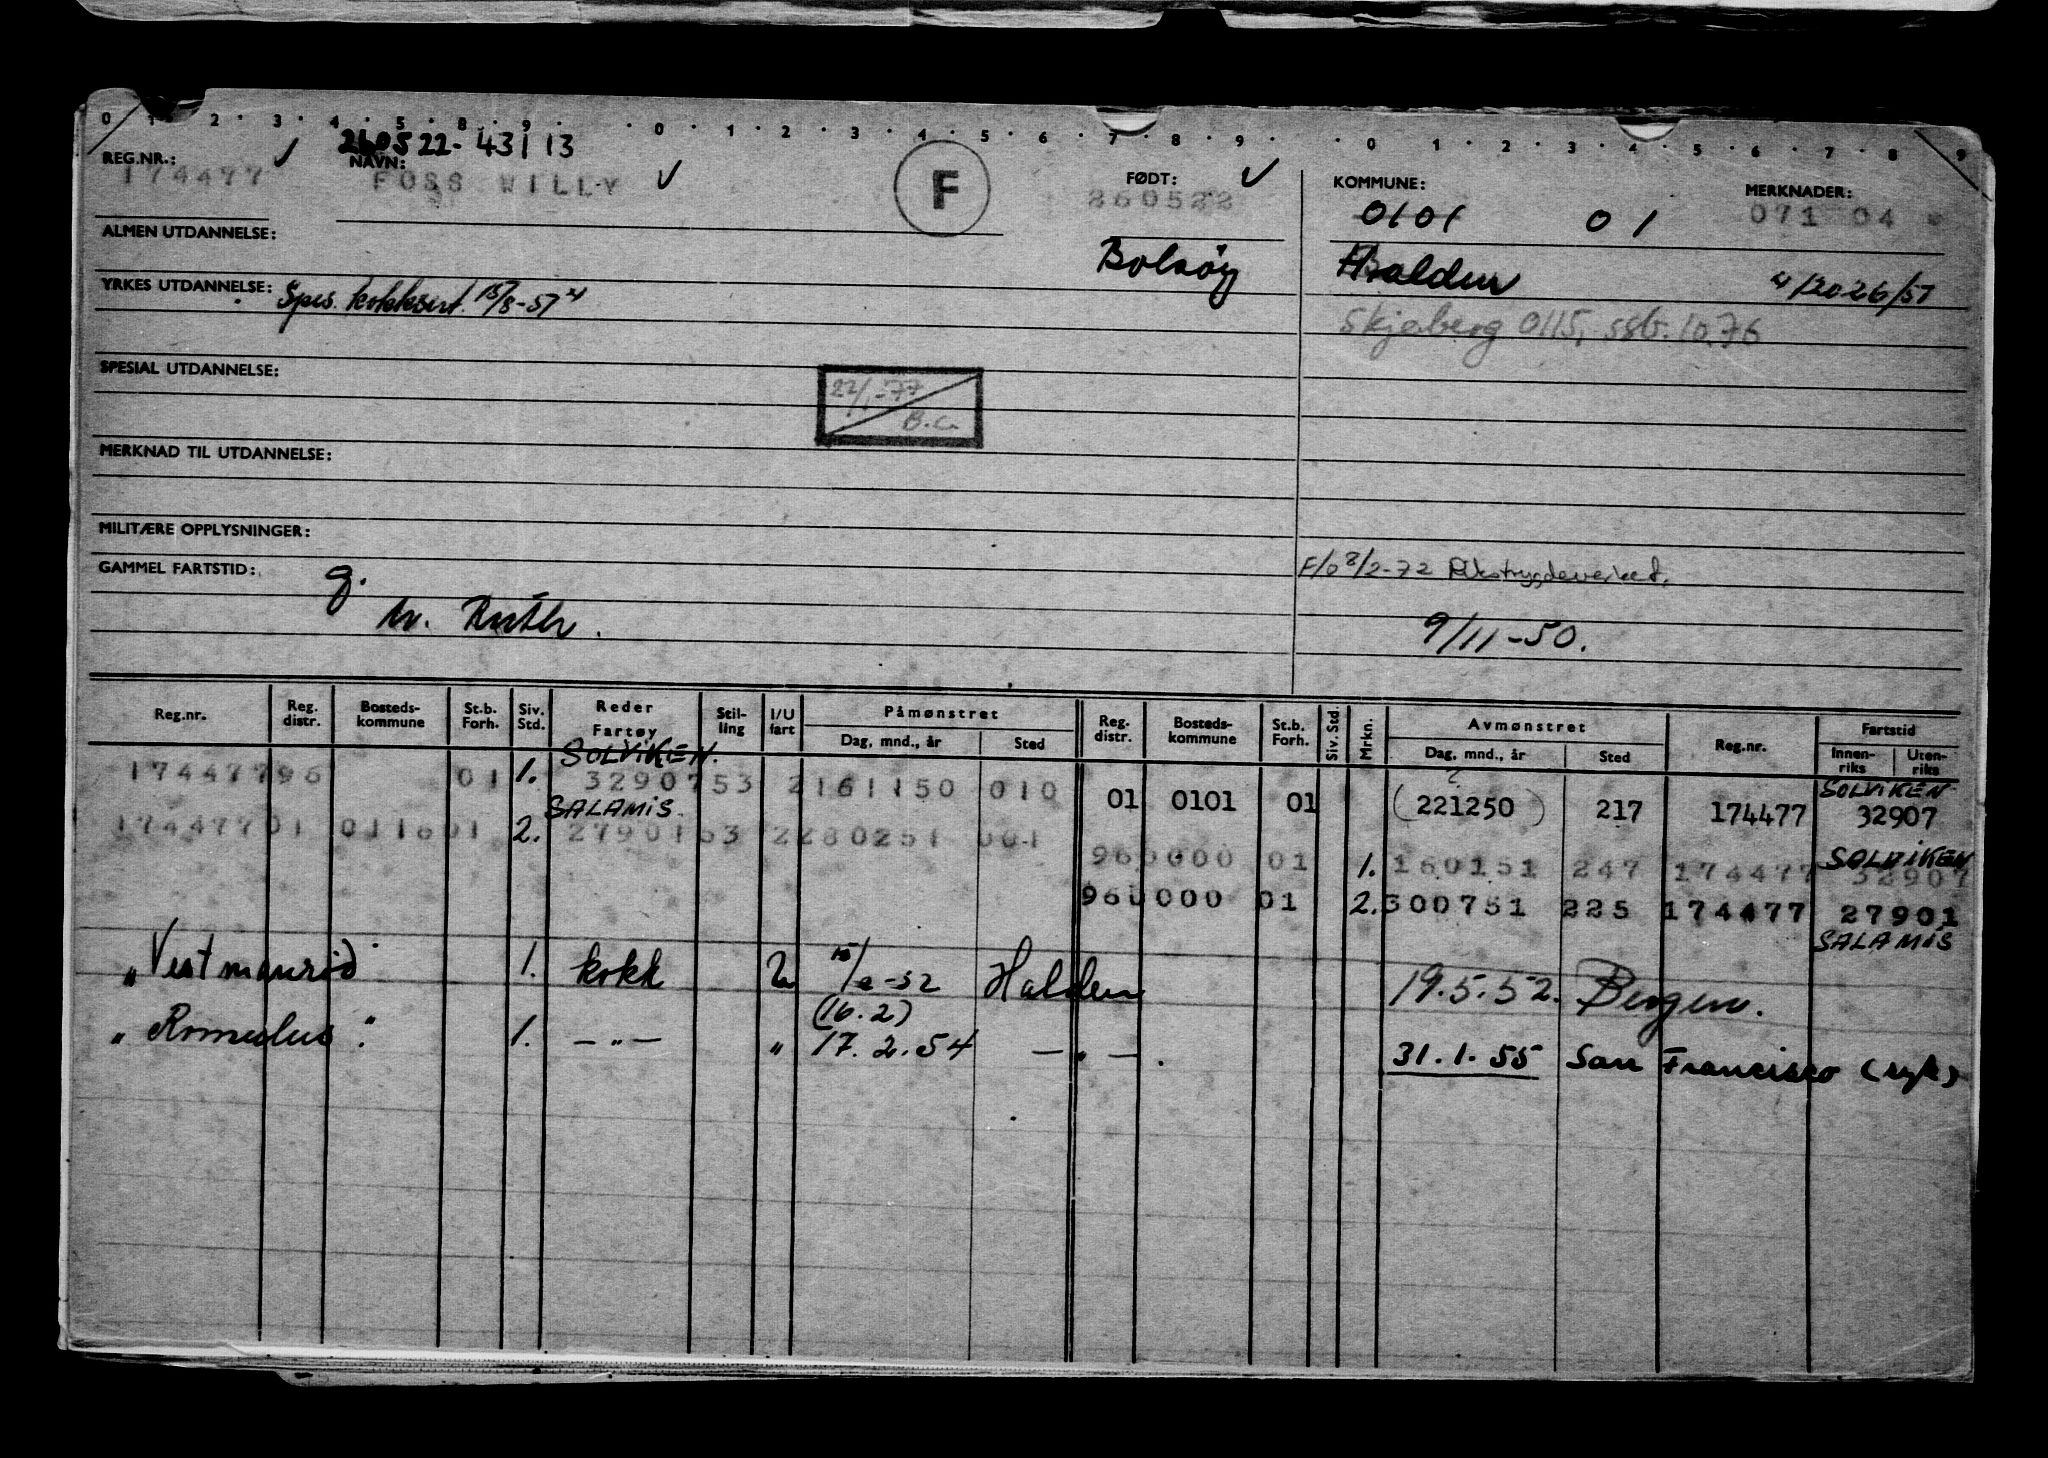 0 1 2 3 4 5 8 9 0 1 2 3 4 5 6 7 8 9 0 1 2 3 4 5 6 7 8 9
260522-43113
REG.NR.: NAVN: FØDT: KOMMUNE: MERKNADER:
174477 FOSS WILLY F 260522 0101 01 071 04
ALMEN UTDANNELSE:
Bolsøy Halden 4/2026/57
YRKES UTDANNELSE: Spes. kokksert. 15/8-57
Skjeberg 0115, ssb. 10.76
SPESIAL UTDANNELSE:
22/1-77
B.C.
MERKNAD TIL UTDANNELSE:
MILITÆRE OPPLYSNINGER:
GAMMEL FARTSTID: g. F/o 8/2-72 Rikstrygdeverket.
m. Ruth. 9/11-50.
Reg.nr. Reg. distr. Bosteds-kommune St.b. Forh. Siv. Std. Reder Fartøy Stil-ling I/U fart Påmønstret Dag, mnd., år Sted Reg. distr. Bosteds-kommune St.b. Forh. Siv. Std. Mrkn. Avmønstret Dag, mnd., år Sted Reg.nr. Fartstid Innen-riks Uten-riks
SOLVIKEN.
17447796 01 1. 32907 53 2161150 010
SOLVIKEN
01 0101 01 (221250) 217 174477 32907
SALAMIS.
17447701 011601 2. 27901 53 2280251 001
SOLVIKEN
960000 01 1. 160151 247 174477 32907
960000 01 2. 300751 225 174477 27901
SALAMIS
"Vestmanrød" 1. kokk u 15/2-52 Halden 19.5.52. Bergen.
(16.2)
"Romulus". 1. — " — " 17.2.54 — " — . 31.1.55 San Francisco (syk)